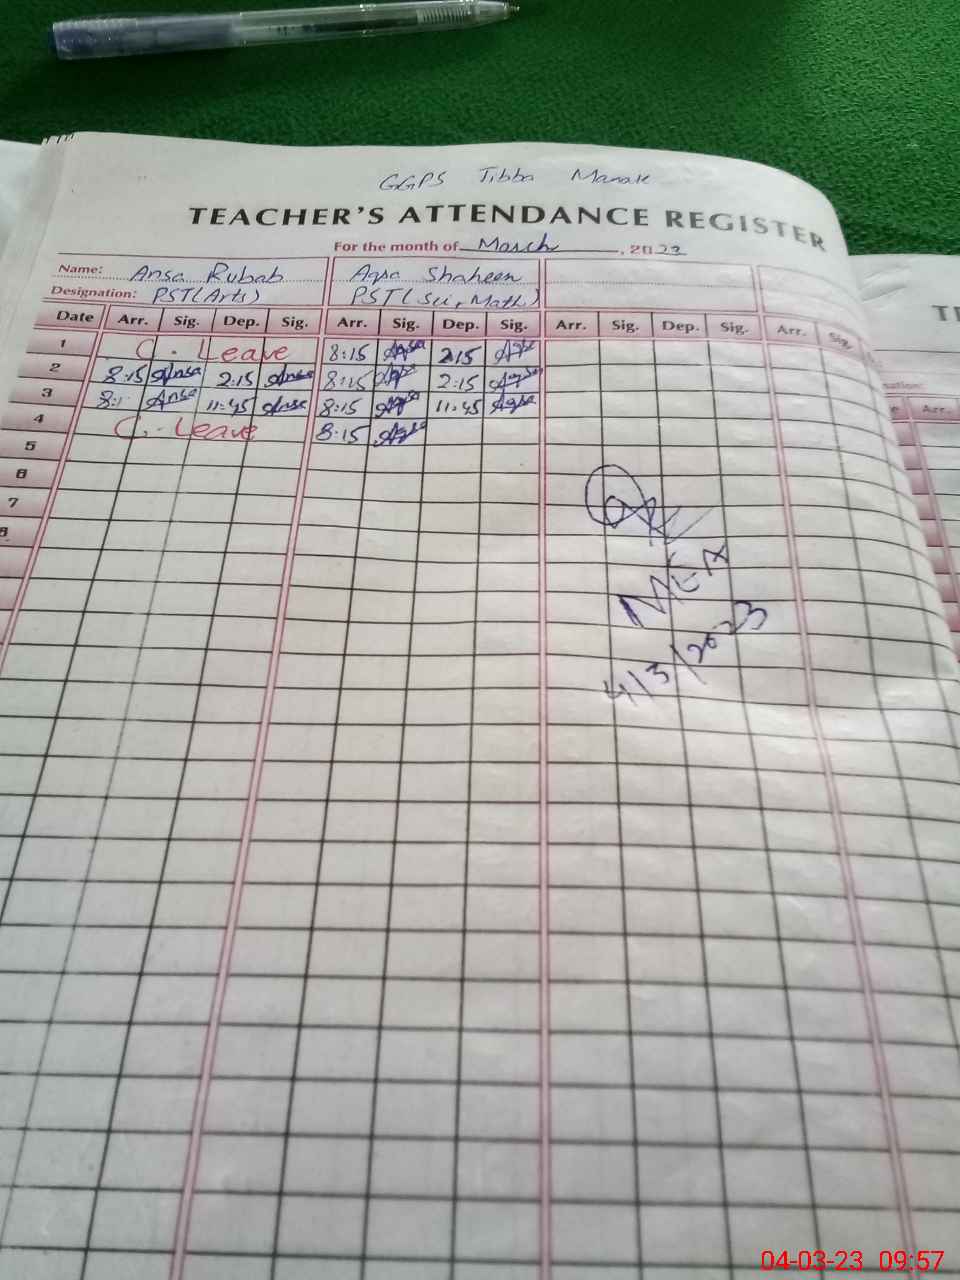 GGPS Tibba
TEACHER'S ATTENDANCE REGISTER
For the month of March, 2023
Name: Ansa Rubab Aqsa Shaheen
Designation: PST(Arts) PST(Sci, Math)
Date Arr. Sig. Dep. Sig. Arr. Sig. Dep. Sig. Arr. Sig. Dep. Sig. Arr. Sig.
1 C. Leave 8:15 Aqsa 2:15 Aqsa
2 8:15 Ansa 2:15 Ansa 8:15 Aqsa 2:15 Aqsa
3 Ansa 11:45 Ansa 8:15 Aqsa 11:45 Aqsa
4 C. Leave 8:15 Aqsa
5
6
7
8
MEA
4/3/2023
Arr.
04-03-23 09:57